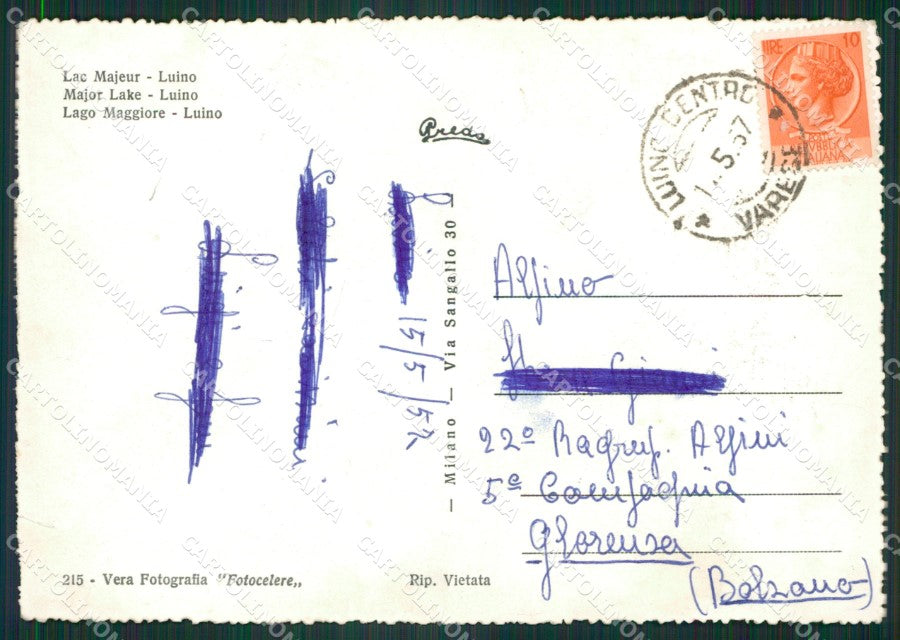 Lac Majeur - Luino
Major Lake - Luino
Lago Maggiore - Luino
Preda
15/5/57
— Milano — Via Sangallo 30 —
LIRE 10
LUINO CENTRO
5.57
VARESE
Alpino
22º Ragrup. Alpini
5ª Compagnia
Glorenza
(Bolzano)
215 - Vera Fotografia "Fotocelere„
Rip. Vietata
CARTOLINOMANIA